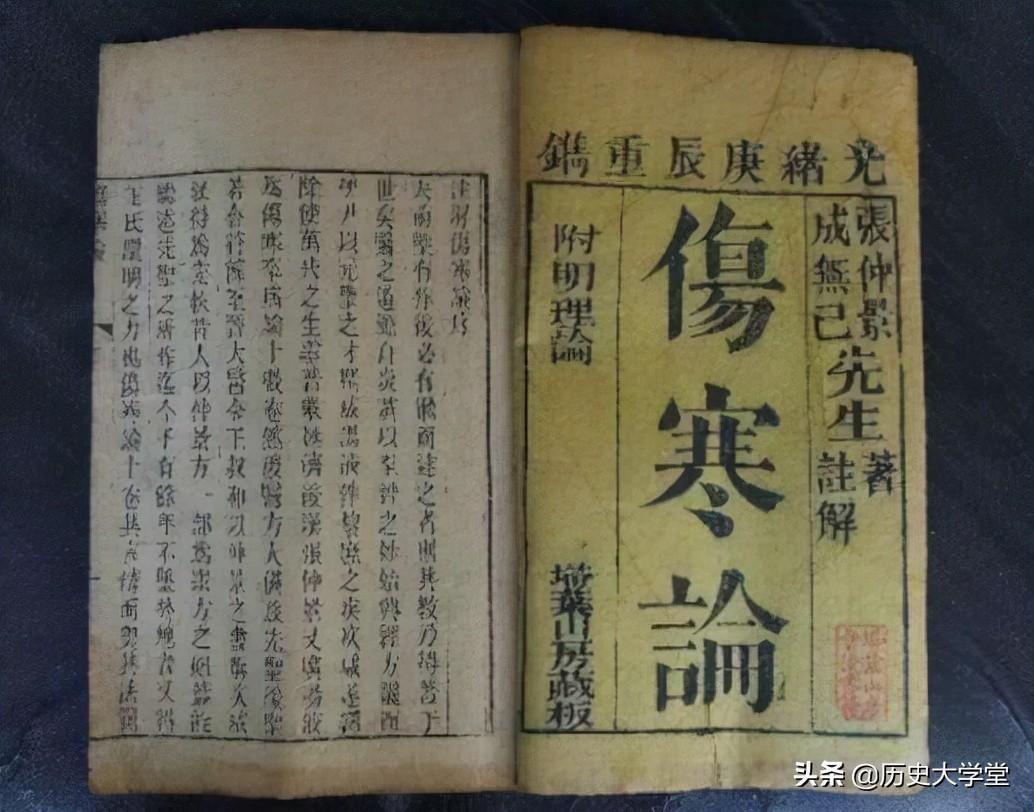 光緒庚辰重鐫
張仲景先生著
成無己先生註解
傷寒論
附明理論
埽葉山房藏板
傷寒論序
有作後必有繼而述之者則其教乃得著于
世矣醫之道源自炎黃以至神之妙始興經方繼而
以元聖之才撰成湯液俾黎庶之疾疢咸遂蠲
除使萬代之生靈普蒙拯濟後漢張仲景又廣湯液
為傷寒卒病論十數卷然後醫方大備茲先聖後聖
若合符節至晉太醫令王叔和以仲景之書撰次成
昔人以仲景方一部為眾方之祖蓋能
繼述先聖之所作迄今千百餘年不墜於地者又得
王氏闡明之力也傷寒論十卷其言精而奧其法簡
头条 @历史大学堂